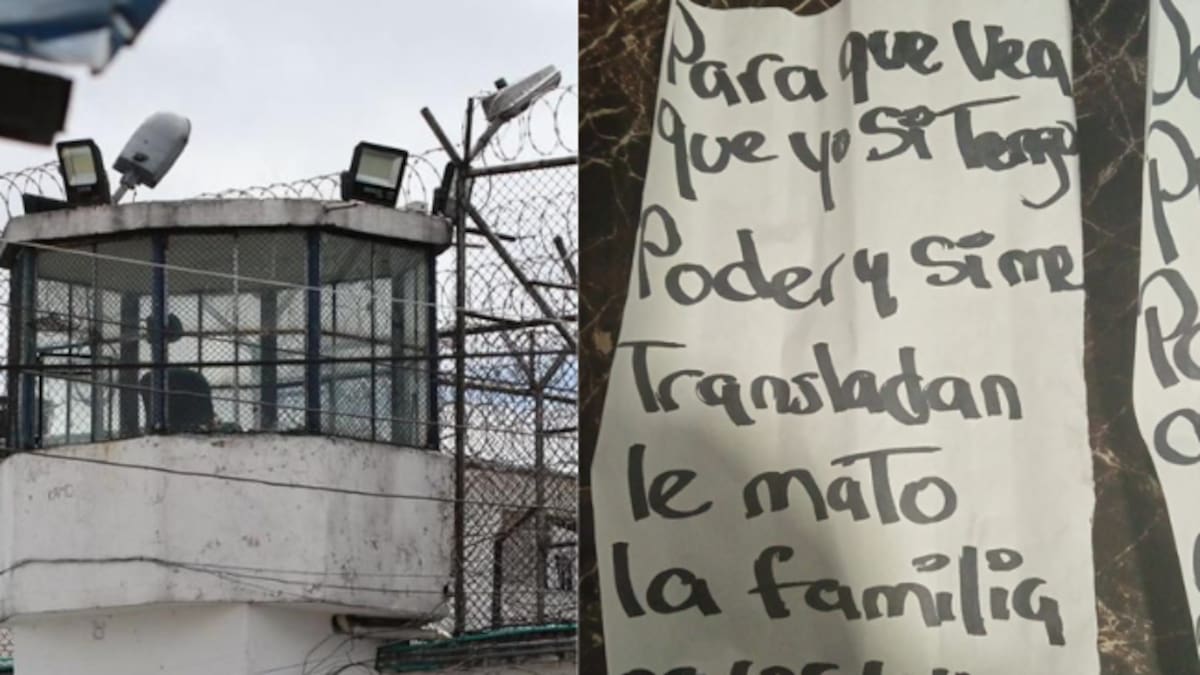 Para que Vea
que yo Si Tengo
Poder y si me
Transladan
le mato
la familia